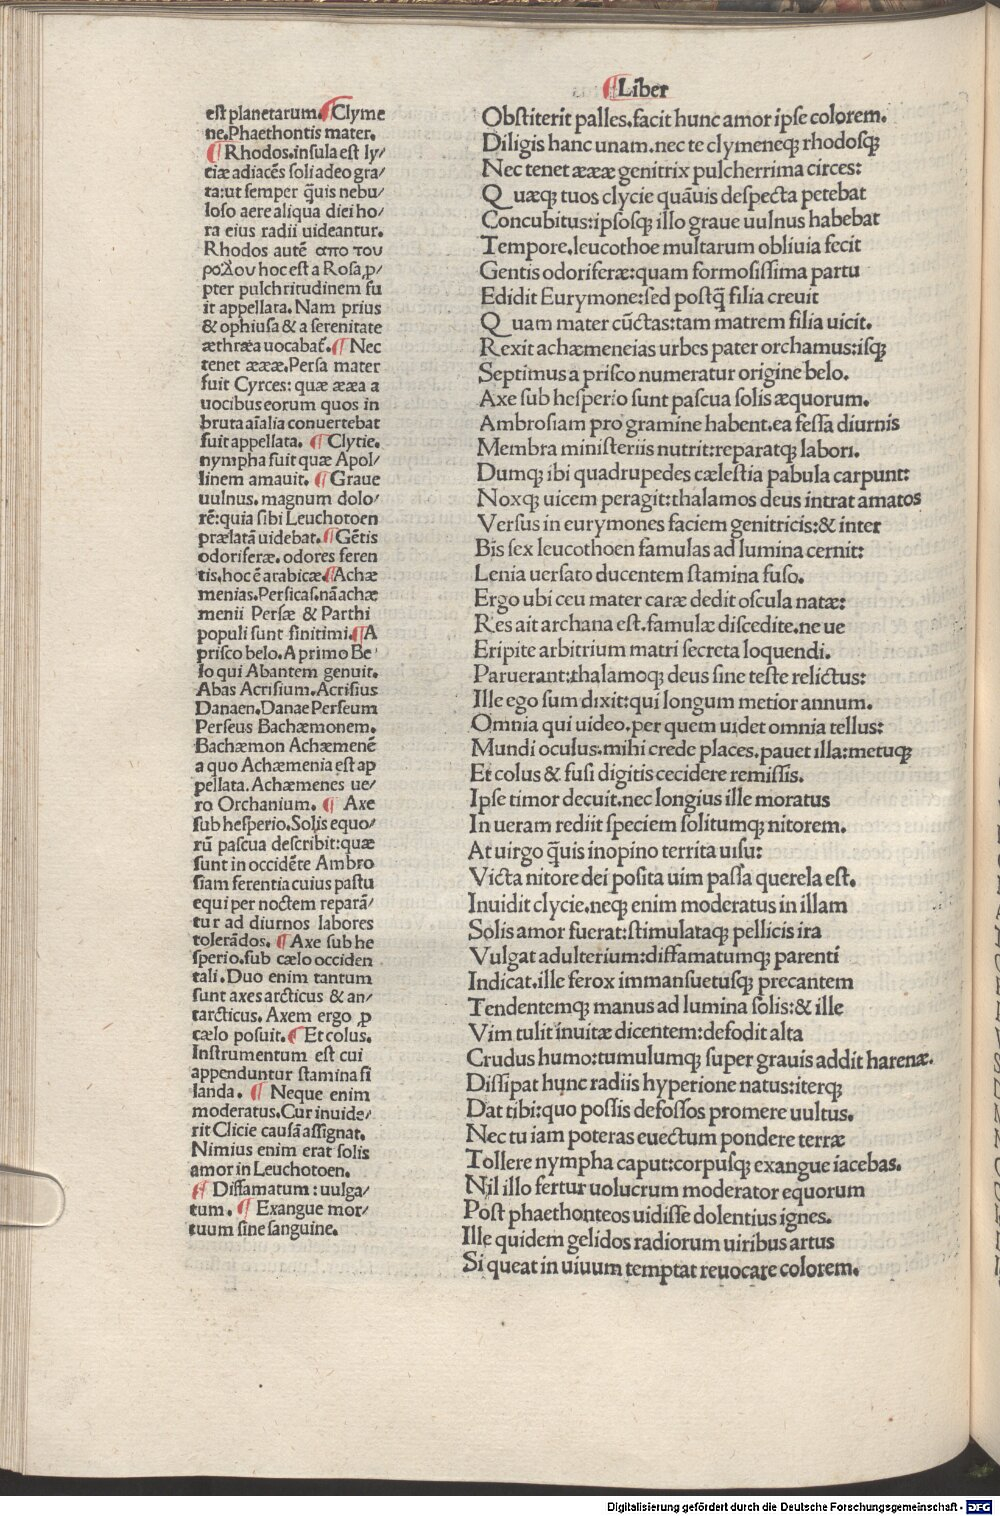 ¶Liber
est planetarum.¶Clyme
ne.Phaethontis mater.
¶Rhodos.insula est ly/
tiæ adiacẽs soli adeo gra/
ta:ut semper q̃uis nebu/
loso aere aliqua diei ho/
ra eius radii uideantur.
Rhodos autẽ απο του
ροδου hoc est a Rosa ꝓ/
pter pulchritudinem fu
it appellata. Nam prius
& ophiusa & a serenitate
æthræa uocabat̃.¶Nec
tenet ææææ.Persa mater
fuit Cyrces: quæ æææa a
uocibus eorum quos in
bruta aĩalia conuertebat
fuit appellata. ¶Clytie.
nympha fuit quæ Apol/
linem amauit. ¶Graue
uulnus. magnum dolo/
rẽ:quia sibi Leuchotoen
prælatã uidebat.¶Gẽtis
odoriferæ. odores feren
tis.hoc ẽ arabicæ¶Achæ
menias.Persicas.nã achæ
menii Persæ & Parthi
populi sunt finitimi.¶A
prisco belo. A primo Be
lo qui Abantem genuit.
Abas Acrisium.Acrisius
Danaen.Danae Perseum
Perseus Bachæmonem.
Bachæmon Achæmenẽ
a quo Achæmenia est ap
pellata. Achæmenes ue/
ro Orchanium. ¶ Axe
sub hesperio.Solis equo/
rũ pascua describit:quæ
sunt in occidẽte Ambro
siam ferentia cuius pastu
equi per noctem reparã/
tur ad diurnos labores
tolerãdos. ¶Axe sub he
sperio.sub cælo occiden
tali.Duo enim tantum
sunt axes arcticus & an/
tarcticus. Axem ergo ꝓ
cælo posuit.¶Et colus.
Instrumentum est cui
appenduntur stamina fi
landa. ¶ Neque enim
moderatus.Cur inuide/
rit Clicie causã assignat.
Nimius enim erat solis
amor in Leuchotoen.
¶Diffamatum: uulga/
tum. ¶Exangue mor/
tuum sine sanguine.
Obstiterit palles.facit hunc amor ipse colorem.
Diligis hanc unam.nec te clymeneqꝫ rhodosqꝫ
Nec tenet ææææ genitrix pulcherrima circes:
Quæqꝫ tuos clycie quãuis despecta petebat
Concubitus:ipsosqꝫ illo graue uulnus habebat
Tempore.leucothoe multarum obliuia fecit
Gentis odoriferæ:quam formosissima partu
Edidit Eurymone:sed postq̃ filia creuit
Quam mater cũctas:tam matrem filia uicit.
Rexit achæmeneias urbes pater orchamus:isqꝫ
Septimus a prisco numeratur origine belo.
Axe sub hesperio sunt pascua solis æquorum.
Ambrosiam pro gramine habent.ea fessa diurnis
Membra ministeriis nutrit:reparatqꝫ labori.
Dumqꝫ ibi quadrupedes cælestia pabula carpunt:
Noxqꝫ uicem peragit:thalamos deus intrat amatos
Versus in eurymones faciem genitricis:& inter
Bis sex leucothoen famulas ad lumina cernit:
Lenia uersato ducentem stamina fuso.
Ergo ubi ceu mater caræ dedit oscula natæ:
Res ait archana est.famulæ discedite.ne ue
Eripite arbitrium matri secreta loquendi.
Paruerant:thalamoqꝫ deus sine teste relictus:
Ille ego sum dixit:qui longum metior annum.
Omnia qui uideo.per quem uidet omnia tellus:
Mundi oculus.mihi crede places.pauet illa:metuqꝫ
Et colus & fusi digitis cecidere remissis.
Ipse timor decuit.nec longius ille moratus
In ueram rediit speciem solitumqꝫ nitorem.
At uirgo q̃uis inopino territa uisu:
Victa nitore dei posita uim passa querela est.
Inuidit clycie.neqꝫ enim moderatus in illam
Solis amor fuerat:stimulataqꝫ pellicis ira
Vulgat adulterium:diffamatumqꝫ parenti
Indicat.ille ferox immansuetusqꝫ precantem
Tendentemqꝫ manus ad lumina solis:& ille
Vim tulit inuitæ dicentem:defodit alta
Crudus humo:tumulumqꝫ super grauis addit harenæ.
Dissipat hunc radiis hyperione natus:iterqꝫ
Dat tibi:quo possis defossos promere uultus.
Nec tu iam poteras euectum pondere terræ
Tollere nympha caput:corpusqꝫ exangue iacebas.
Nil illo fertur uolucrum moderator equorum
Post phaethonteos uidisse dolentius ignes.
Ille quidem gelidos radiorum uiribus artus
Si queat in uiuum temptat reuocare colorem.
Digitalisierung gefördert durch die Deutsche Forschungsgemeinschaft - DFG